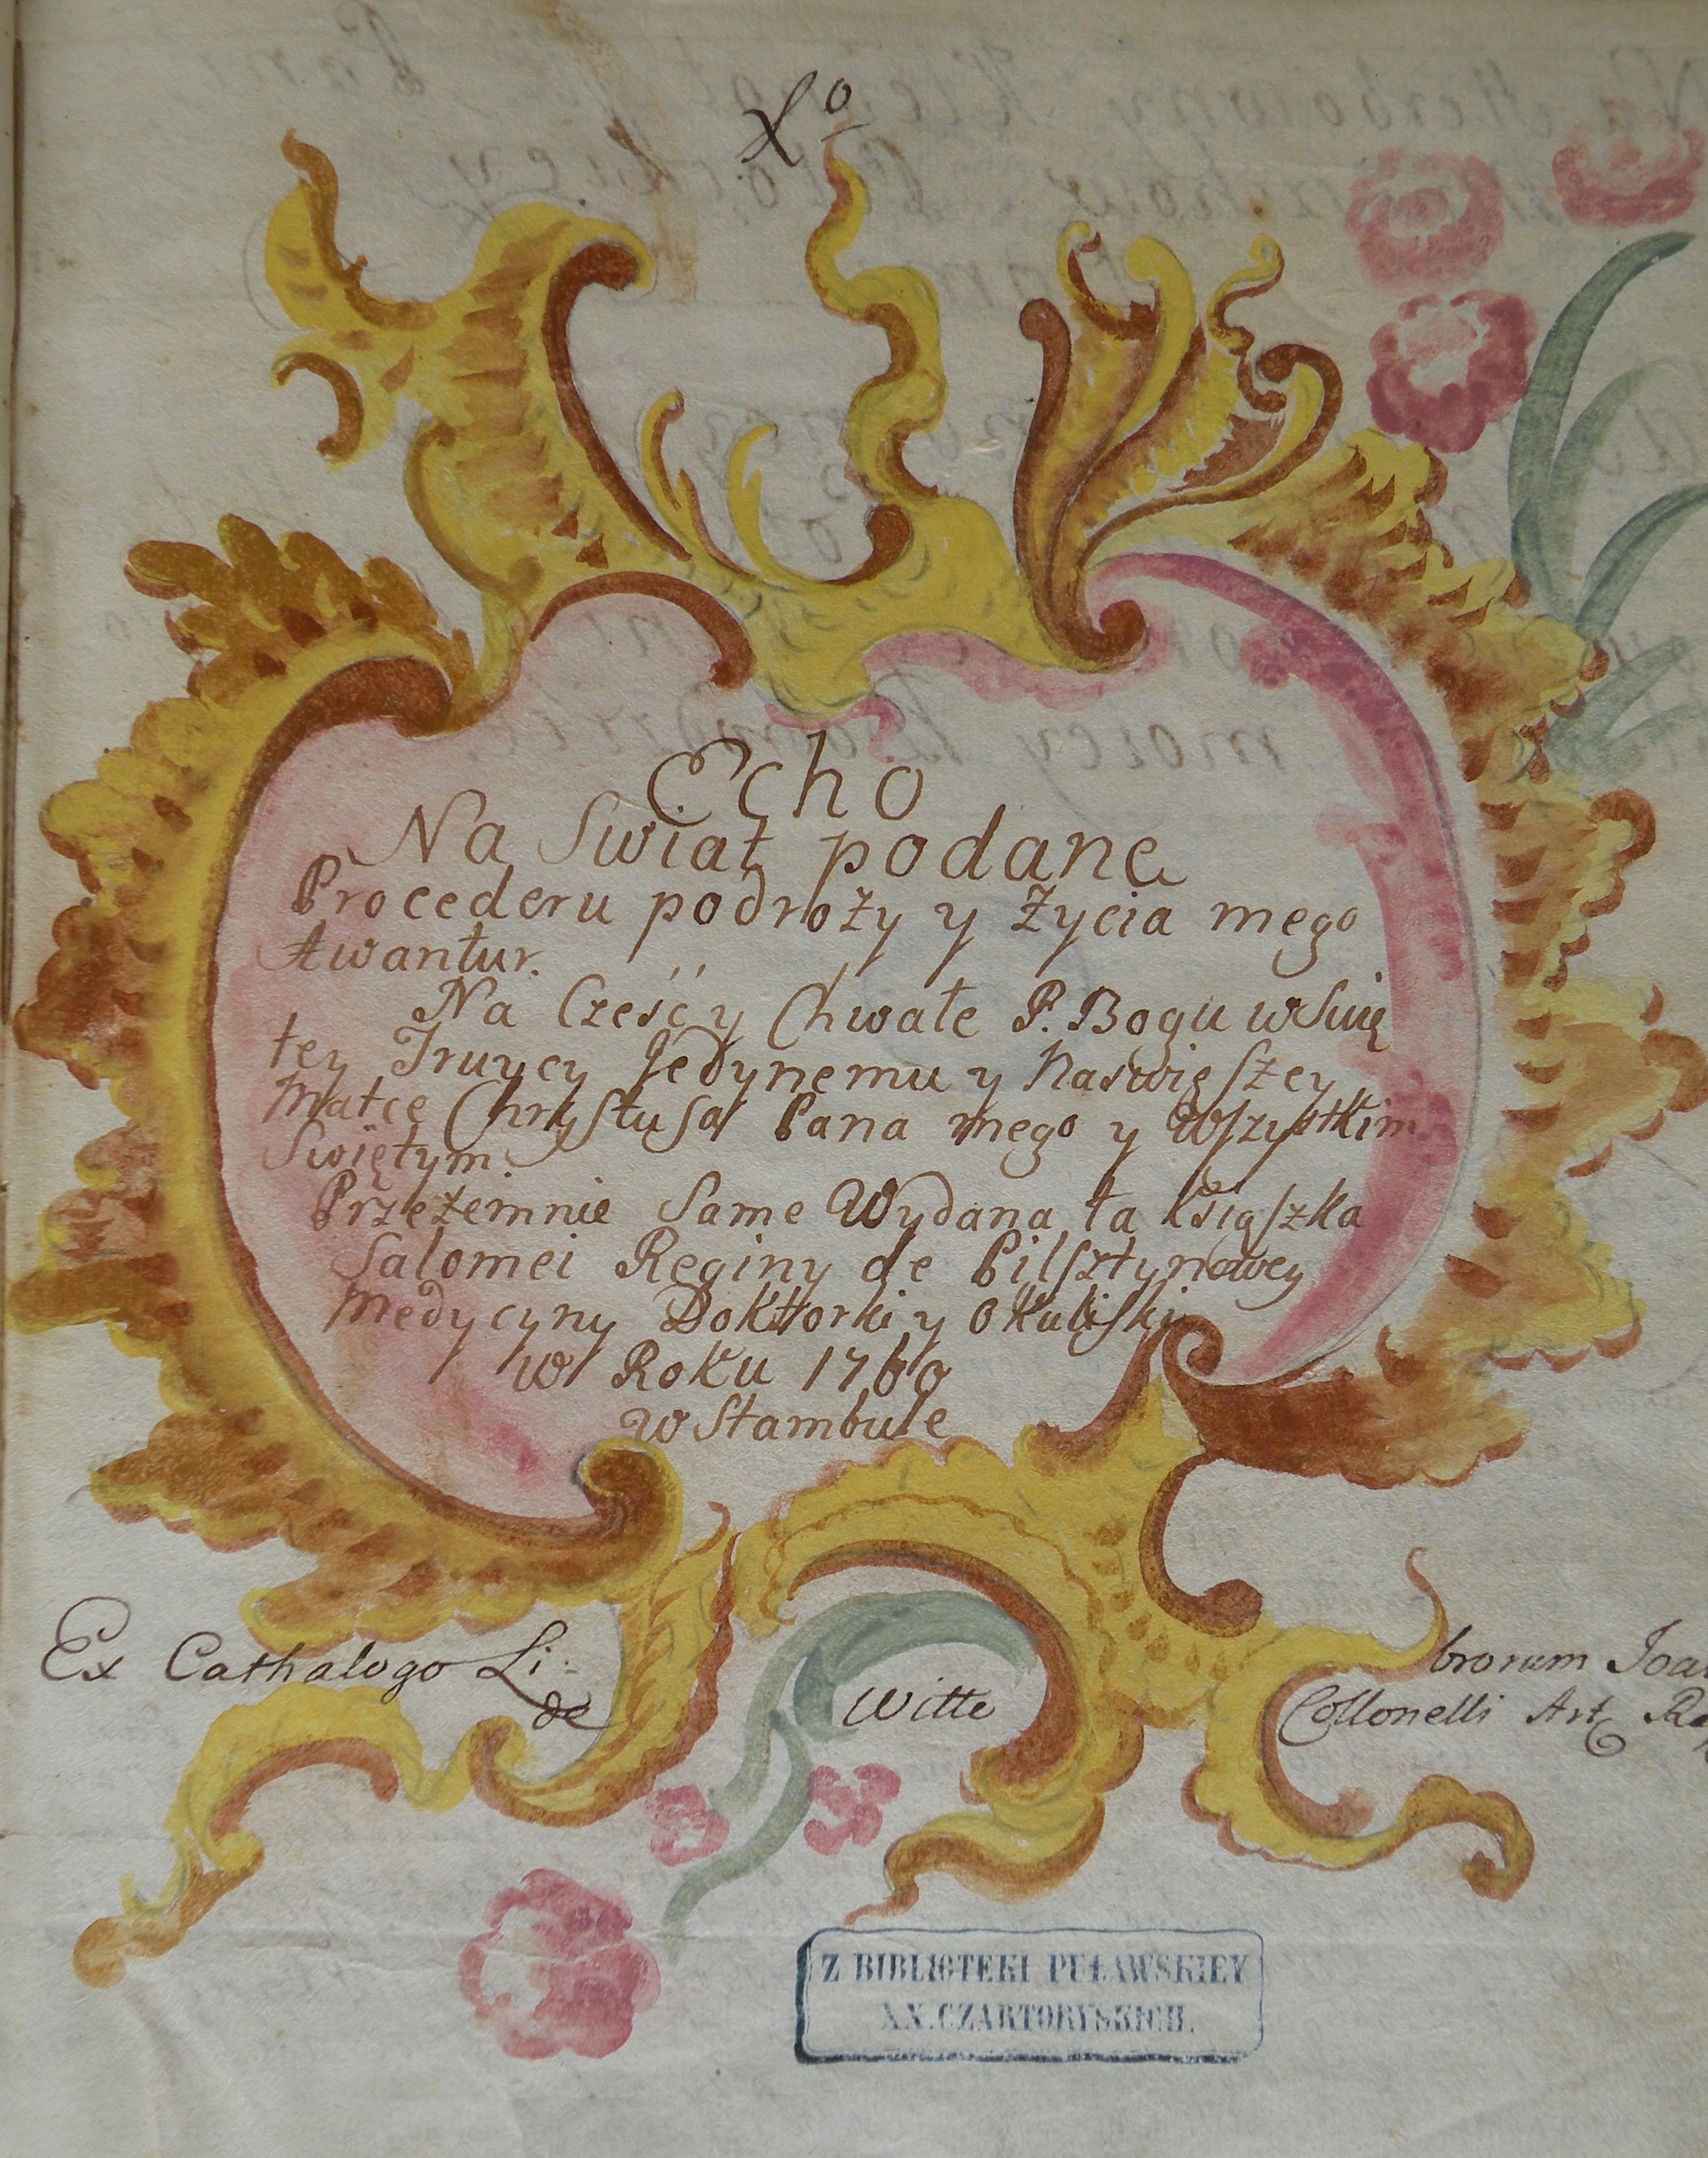 Echo
Na Swiat podane
Procederu podroży y Życia mego
Awantur.
Na Cześć y Chwałe P. Bogu w Swię
tey Truycy Jedynemu y Naswięszey
Matce Chrystusa Pana mego y Wszystkim
Swiętym.
Przezemnie Same Wydana ta Książka
Salomei Reginy de Pilsztynowey
Medycyny Doktorki y Okulistki
w Roku 1760
w Stambule
Ex Cathalogo Li-
brorum Joa
de Witte
Collonelli Art
Z BIBLIOTEKI PUŁAWSKIEY
XX. CZARTORYSKICH.